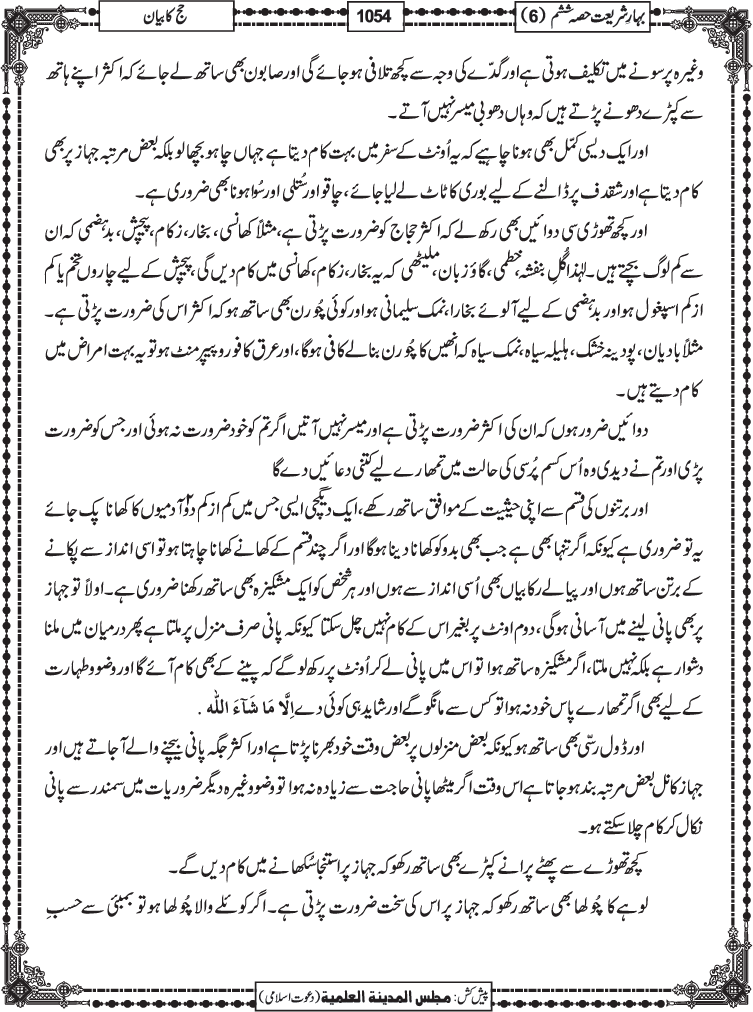 بہارِ شریعت حصہ ششم (6)
1054
حج کا بیان
وغیرہ پر سونے میں تکلیف ہوتی ہے اور گدّے کی وجہ سے کچھ تلافی ہوجائے گی اور صابون بھی ساتھ لے جائے کہ اکثر اپنے ہاتھ
سے کپڑے دھونے پڑتے ہیں کہ وہاں دھوبی میسر نہیں آتے ۔
اور ایک دیسی کمّل بھی ہونا چاہیے کہ یہ اُونٹ کے سفر میں بہت کام دیتا ہے جہاں چاہو بچھالو بلکہ بعض مرتبہ جہاز پر بھی
کام دیتا ہے اور شقدف پر ڈالنے کے لیے بوری کا ٹاٹ لے لیا جائے ، چاقو اور سُتلی اور سُوا ہونا بھی ضروری ہے۔
اور کچھ تھوڑی سی دوائیں بھی رکھ لے کہ اکثر حجاج کو ضرورت پڑتی ہے، مثلاً کھانسی، بخار، زکام، پیچش، بدہضمی کہ ان
سے کم لوگ بچتے ہیں۔ لہٰذا گُلِ بنفشہ، خطمی، گاؤ زبان، ملیٹھی کہ یہ بخار، زکام، کھانسی میں کام دیں گی، پیچش کے لیے چاروں تخم یا کم
از کم اسپغول ہو اور بدہضمی کے لیے آلوئے بخارا، نمک سلیمانی ہو اور کوئی چُورن بھی ساتھ ہو کہ اکثر اس کی ضرورت پڑتی ہے۔
مثلاً بادیان، پودینہ خشک، ہلیلہ سیاہ، نمک سیاہ کہ انھیں کا چُورن بنالے کافی ہوگا، اور عرق کافور و پیپرمنٹ ہو تو یہ بہت امراض میں
کام دیتے ہیں ۔
دوائیں ضرور ہوں کہ ان کی اکثر ضرورت پڑتی ہے اور میسر نہیں آتیں اگر تم کو خود ضرورت نہ ہوئی اور جس کو ضرورت
پڑی اور تم نے دیدی وہ اُس کسم پُرسی کی حالت میں تمھارے لیے کتنی دعائیں دے گا
اور برتنوں کی قسم سے اپنی حیثیت کے موافق ساتھ رکھے، ایک دیگچی ایسی جس میں کم از کم دوآدمیوں کا کھانا پک جائے
یہ تو ضروری ہے کیونکہ اگر تنہا بھی ہے جب بھی بدو کو کھانا دینا ہوگا اور اگر چند قسم کے کھانے کھانا چاہتا ہو تو اسی انداز سے پکانے
کے برتن ساتھ ہوں اور پیالے رکابیاں بھی اُسی انداز سے ہوں اور ہر شخص کو ایک مشکیزہ بھی ساتھ رکھنا ضروری ہے۔ اولاً تو جہاز
پر بھی پانی لینے میں آسانی ہوگی، دوم اونٹ پر بغیر اس کے کام نہیں چل سکتا کیونکہ پانی صرف منزل پر ملتا ہے پھر درمیان میں ملنا
دشوار ہے بلکہ نہیں ملتا، اگر مشکیزہ ساتھ ہوا تو اس میں پانی لے کر اُونٹ پر رکھ لو گے کہ پینے کے بھی کام آئے گا اور وضو و طہارت
کے لیے بھی اگر تمھارے پاس خود نہ ہوا تو کس سے مانگو گے اور شاید ہی کوئی دے اِلَّا مَا شَآءَ اللہ ۔
اور ڈول رسّی بھی ساتھ ہو کیونکہ بعض منزلوں پر بعض وقت خود بھرنا پڑتا ہے اور اکثر جگہ پانی بیچنے والے آجاتے ہیں اور
جہاز کا نل بعض مرتبہ بند ہوجاتا ہے اس وقت اگر میٹھا پانی حاجت سے زیادہ نہ ہوا تو وضو وغیرہ دیگر ضروریات میں سمندر سے پانی
نکال کر کام چلا سکتے ہو۔
کچھ تھوڑے سے پھٹے پرانے کپڑے بھی ساتھ رکھو کہ جہاز پر استنجا سُکھانے میں کام دیں گے۔
لوہے کا چُولھا بھی ساتھ رکھو کہ جہاز پر اس کی سخت ضرورت پڑتی ہے۔ اگر کوئلے والا چُولھا ہو تو بمبئی سے حسبِ
پیش کش: مجلس المدینۃ العلمیۃ (دعوت اسلامی)